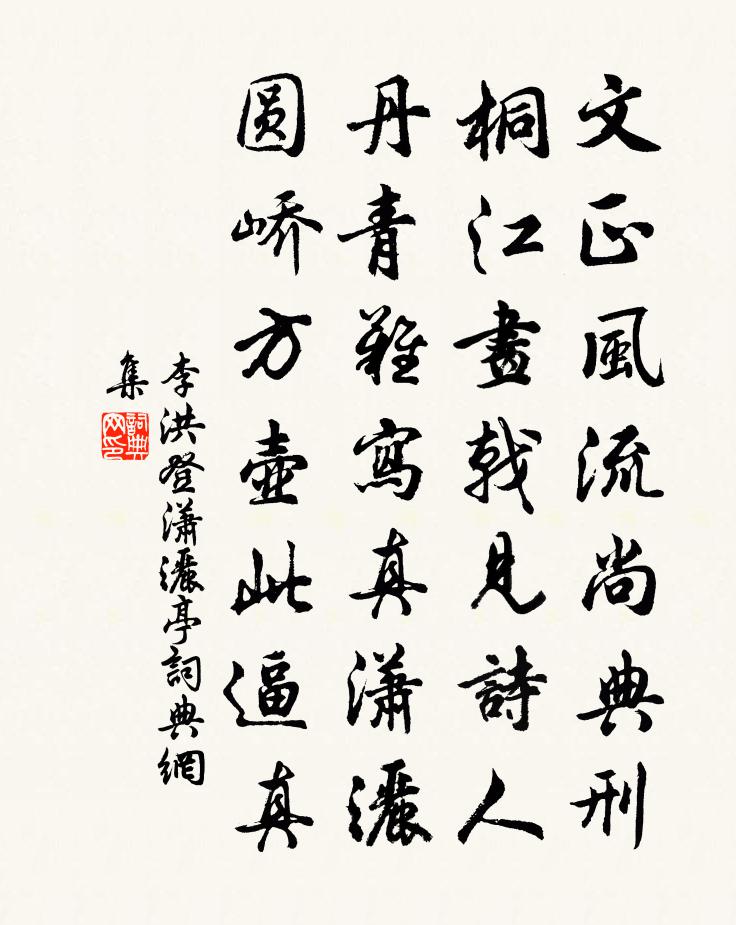 文正風流尚典刑
桐江畫戟見詩人
丹青難寫真瀟灑
圆峤方壺此逼真
李洪登瀟灑亭詞典網
集
詞典网印